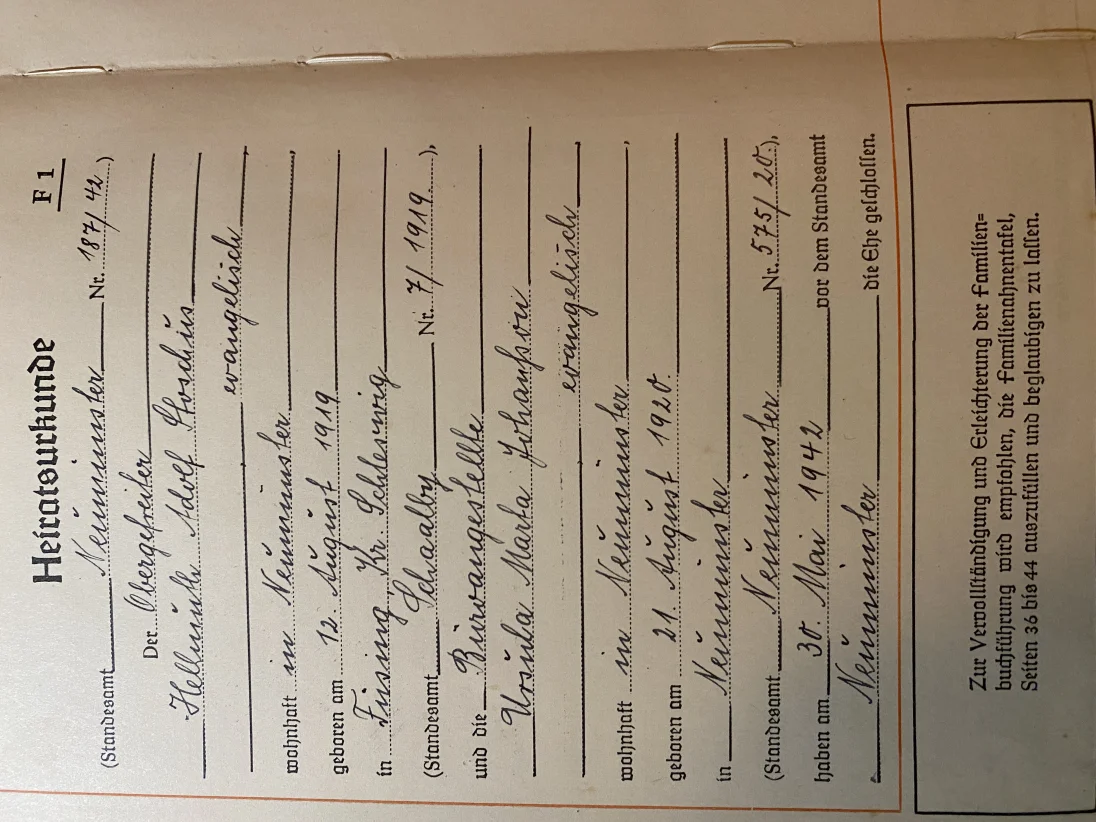 Heiratsurkunde
F 1
(Standesamt Neumünster Nr. 187/42.)
Der Obergefreiter
Hellmuth Adolf Stoschus
evangelisch,
wohnhaft in Neumünster,
geboren am 12. August 1919
in Füsing, Kr. Schleswig
(Standesamt Schaalby Nr. 7/1919.),
und die Büroangestellte
Ursula Marta Johannson
evangelisch,
wohnhaft in Neumünster,
geboren am 21. August 1920.
in Neumünster
(Standesamt Neumünster Nr. 575/20.),
haben am 30. Mai 1942 vor dem Standesamt
Neumünster die Ehe geschlossen.
Zur Vervollständigung und Erleichterung der Familien=
buchführung wird empfohlen, die Familienahnentafel,
Seiten 36 bis 44 auszufüllen und beglaubigen zu lassen.